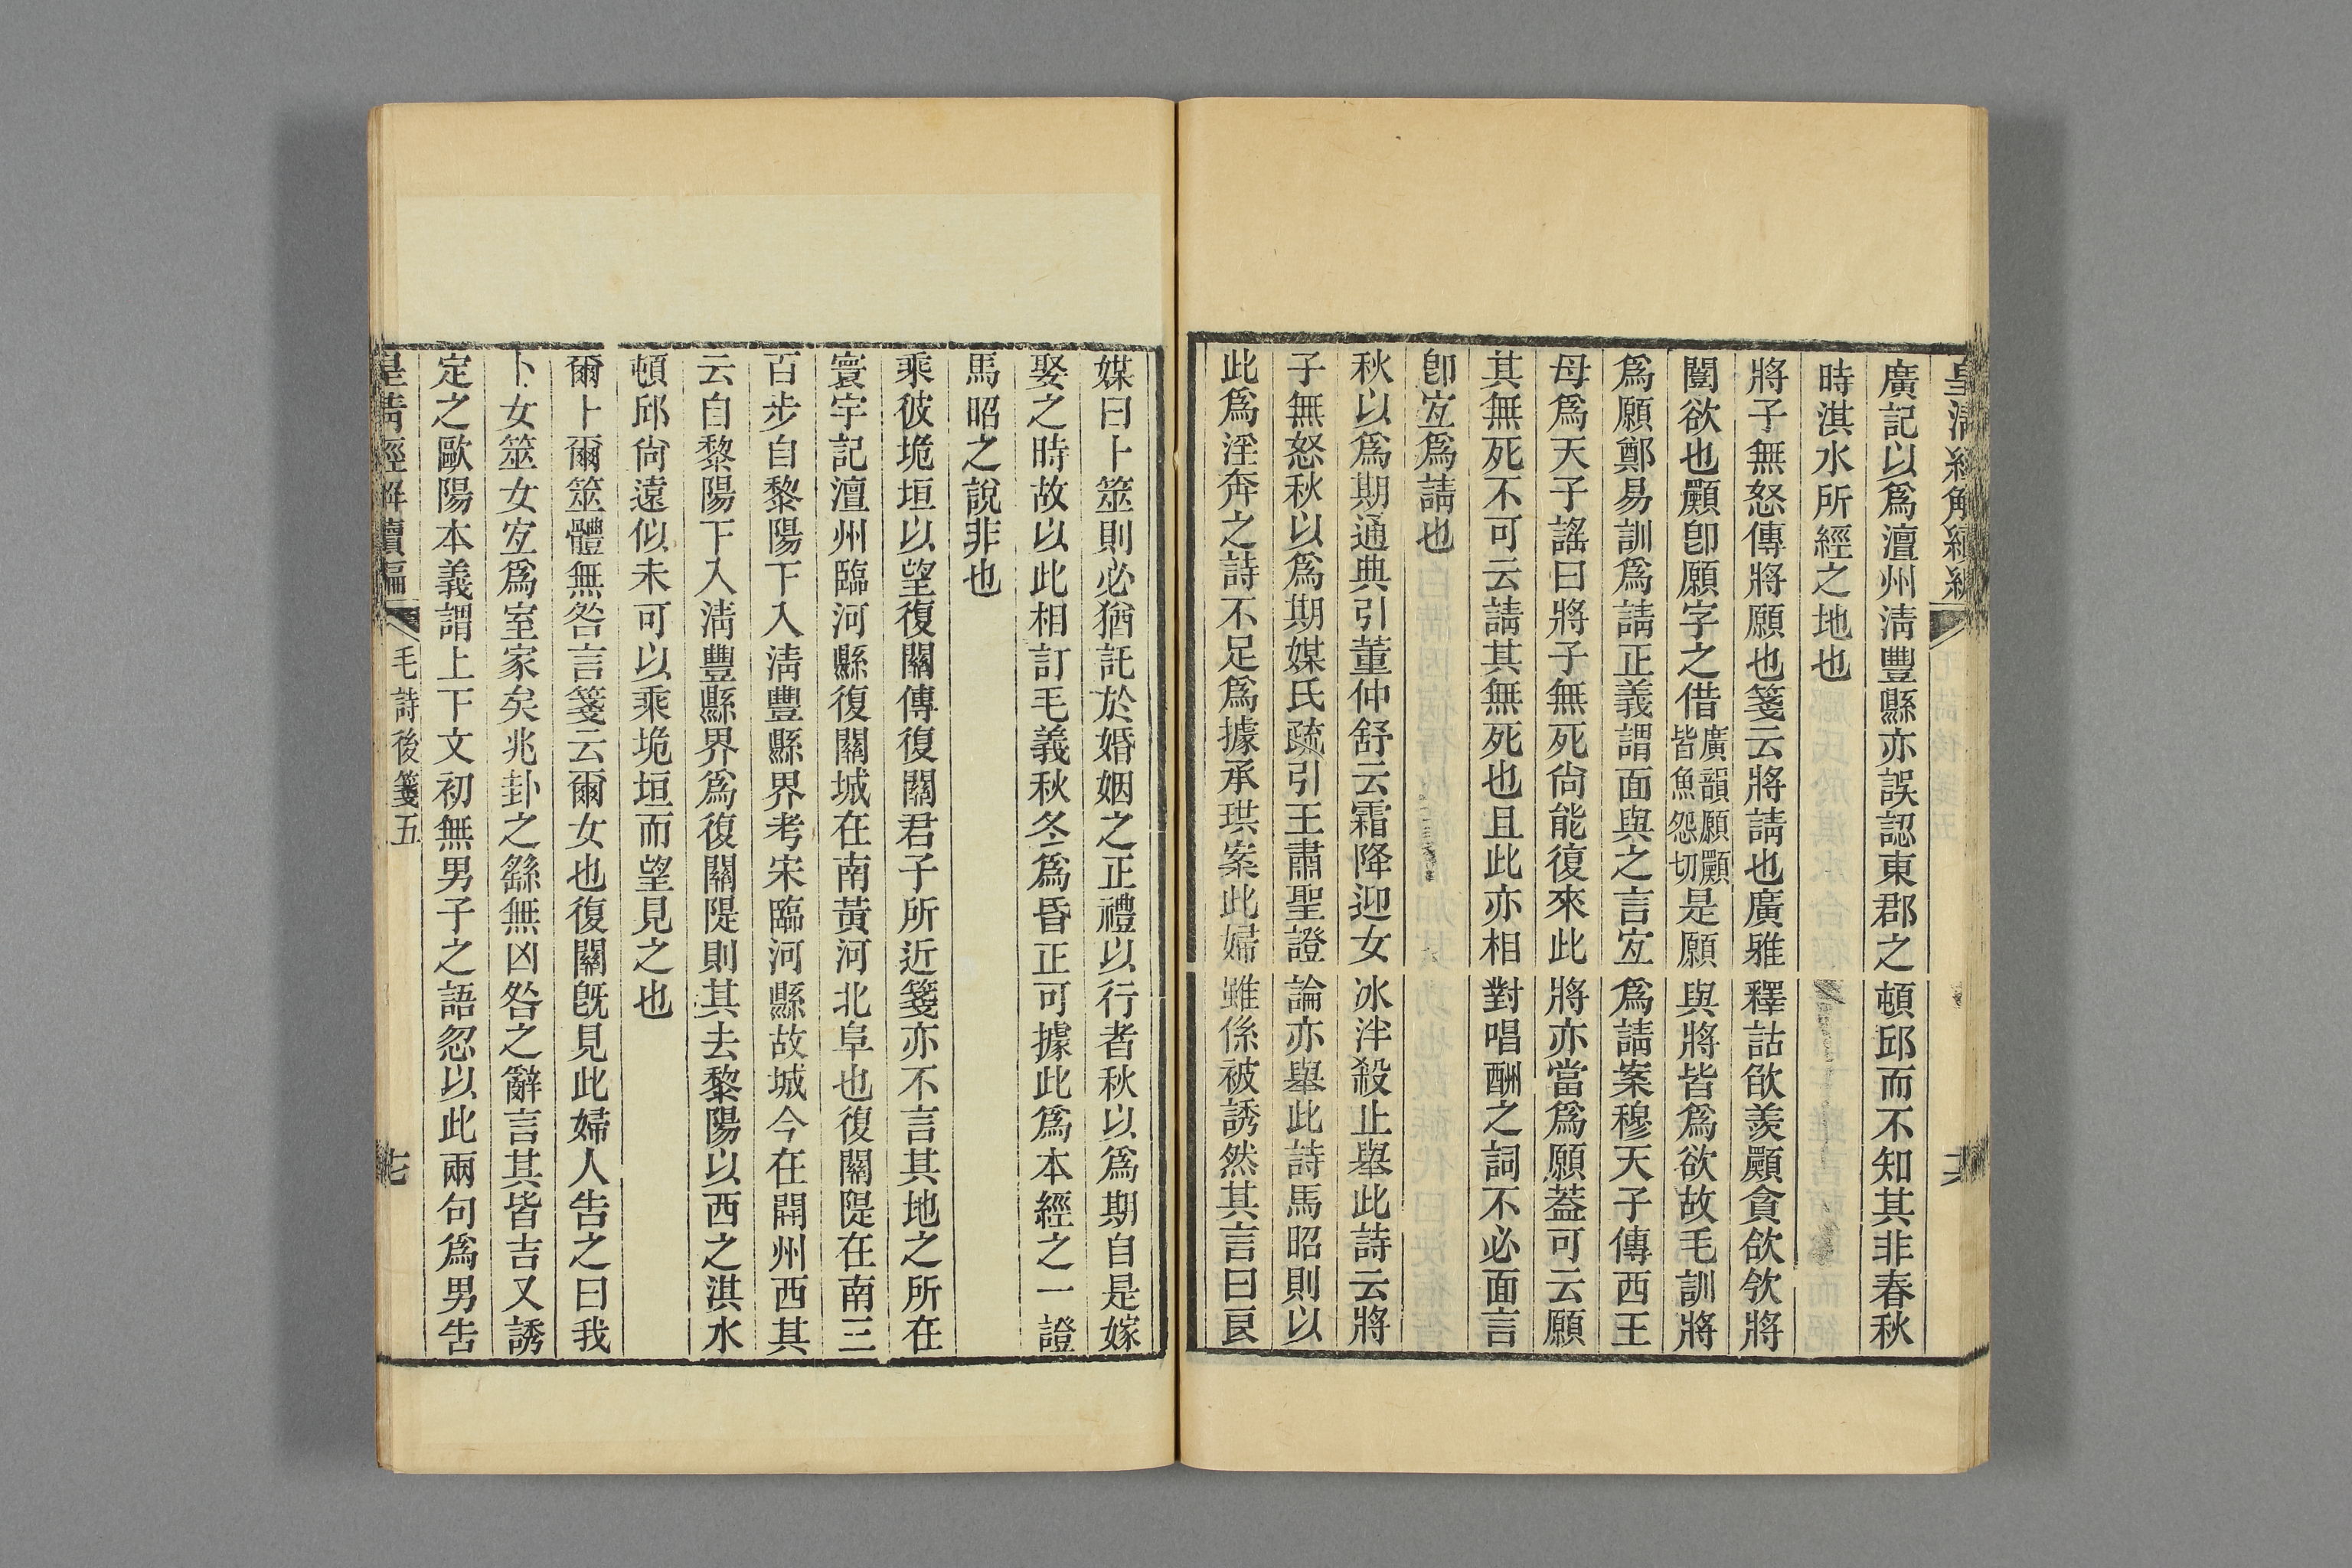 廣記以爲澶州淸豐縣亦誤認東郡之頓邱而不知其非春秋
時淇水所經之地也
將子無怒傳將願也箋云將請也廣雅釋詁欿羨顥貪欲欲將
闓欲也顥卽願字之借廣韻願顥皆魚怨切是願與將皆爲欲故毛訓將
爲願鄭易訓爲請正義謂面與之言宐爲請案穆天子傳西王
母爲天子謠曰將子無死尙能復來此將亦當爲願葢可云願
其無死不可云請其無死也且此亦相對唱酬之詞不必面言
卽宐爲請也
秋以爲期通典引董仲舒云霜降迎女冰泮殺止舉此詩云將
子無怒秋以爲期媒氏疏引王肅聖證論亦舉此詩馬昭則以
此爲淫奔之詩不足爲據承珙案此婦雖係被誘然其言曰良
媒曰卜筮則必猶託於婚姻之正禮以行者秋以爲期自是嫁
娶之時故以此相訂毛義秋冬爲昏正可據此爲本經之一證
馬昭之說非也
乘彼垝垣以望復關傳復關君子所近箋亦不言其地之所在
寰宇記澶州臨河縣復關城在南黃河北阜也復關隄在南三
百步自黎陽下入淸豐縣界考宋臨河縣故城今在開州西其
云自黎陽下入淸豐縣界爲復關隄則其去黎陽以西之淇水
頓邱尙遠似未可以乘垝垣而望見之也
爾卜爾筮體無咎言箋云爾女也復關旣見此婦人告之曰我
卜女筮女宐爲室家矣兆卦之繇無凶咎之辭言其皆吉又誘
定之歐陽本義謂上下文初無男子之語忽以此兩句爲男告
皇淸經解續編 毛詩後箋五 七